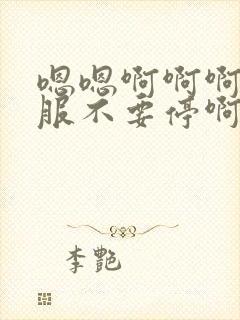 嗯嗯啊啊啊
服不要停啊
李艷